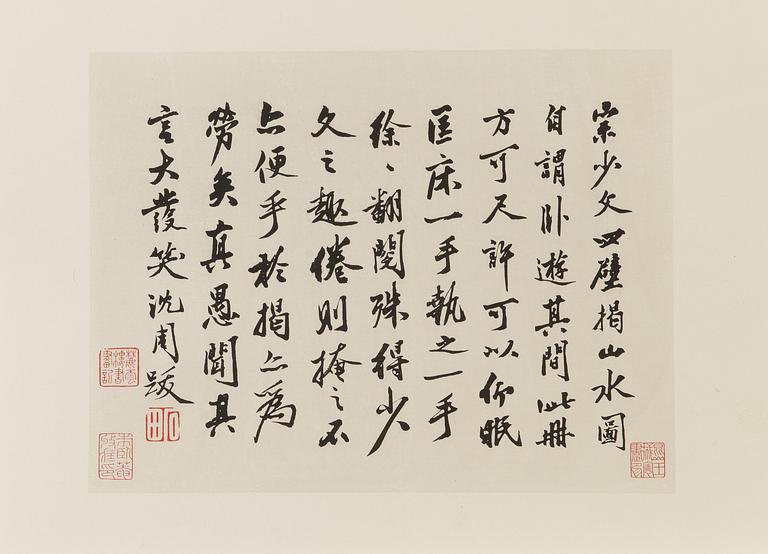 宗少文四壁揭山水圖
自謂卧遊其間此冊
方可尺許可以仰眠
匡床一手執之一手
徐〻翻閱殊得少
文之趣倦則掩之不
亦便乎於揭亦爲
勞矣真愚聞其
言大發笑沈周跋